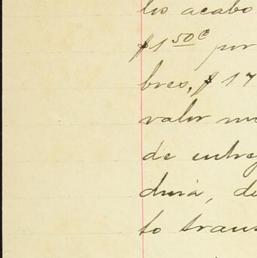 los acabo
$1.50¢ por
bres, $17
valor
de entre
duiá, de
to trans